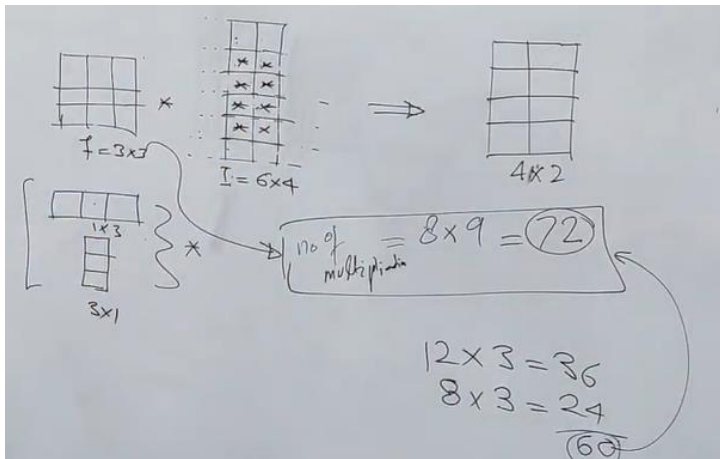 *
f = 3x3
I = 6x4
⇒
4x2
1x3
3x1
*
no of multiplication = 8 x 9 = 72
12 x 3 = 36
8 x 3 = 24
60